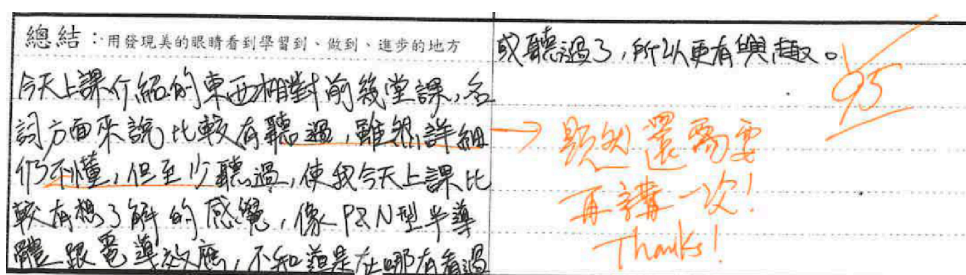 總結：用發現美的眼睛看到學習到、做到、進步的地方
今天上課介紹的東西相對前幾堂課，名
詞方面來說比較有聽過，雖然詳細
仍不懂，但至少聽過，使我今天上課比
較有想了解的感覺，像P&N型半導
體跟電導效應，不知道是在哪有看過
或聽過了，所以更有興趣。
95
→ 顯然還需要
再講一次！
Thanks!